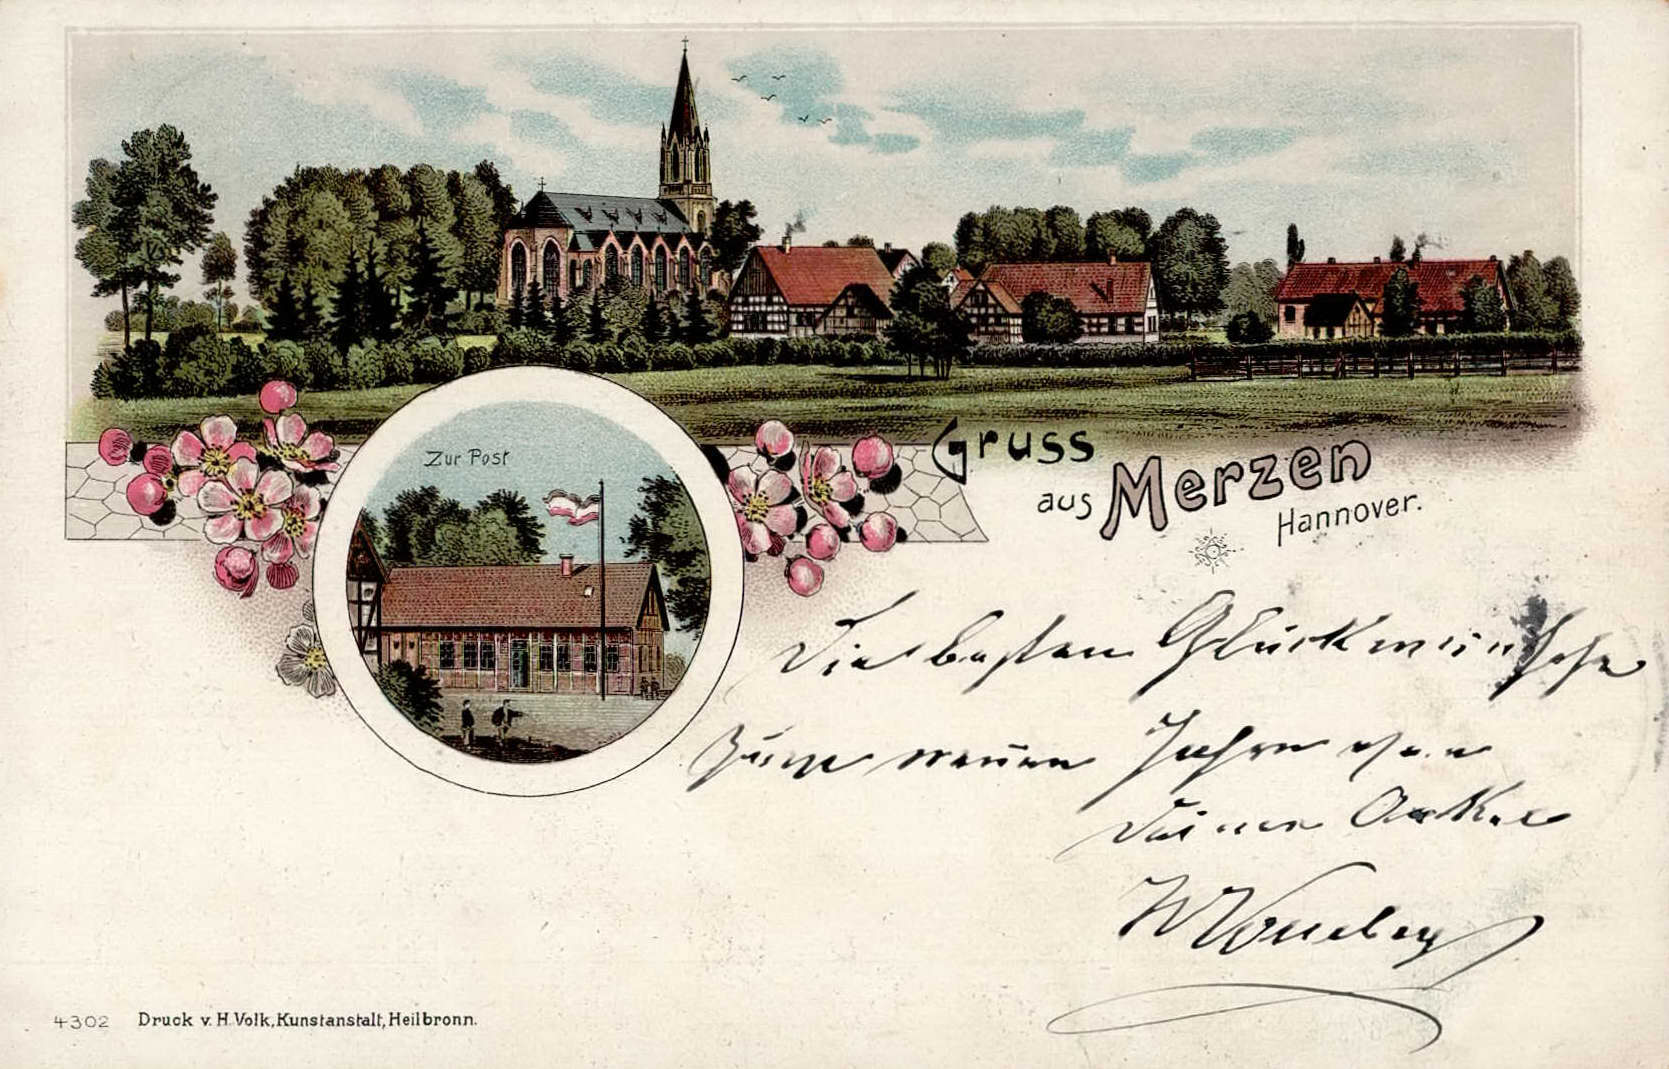 Zur Post
Gruss
aus Merzen
Hannover.
Die besten Glückwünsche
zum neuen Jahre
Deines Onkel
4302 Druck v. H. Volk, Kunstanstalt, Heilbronn.